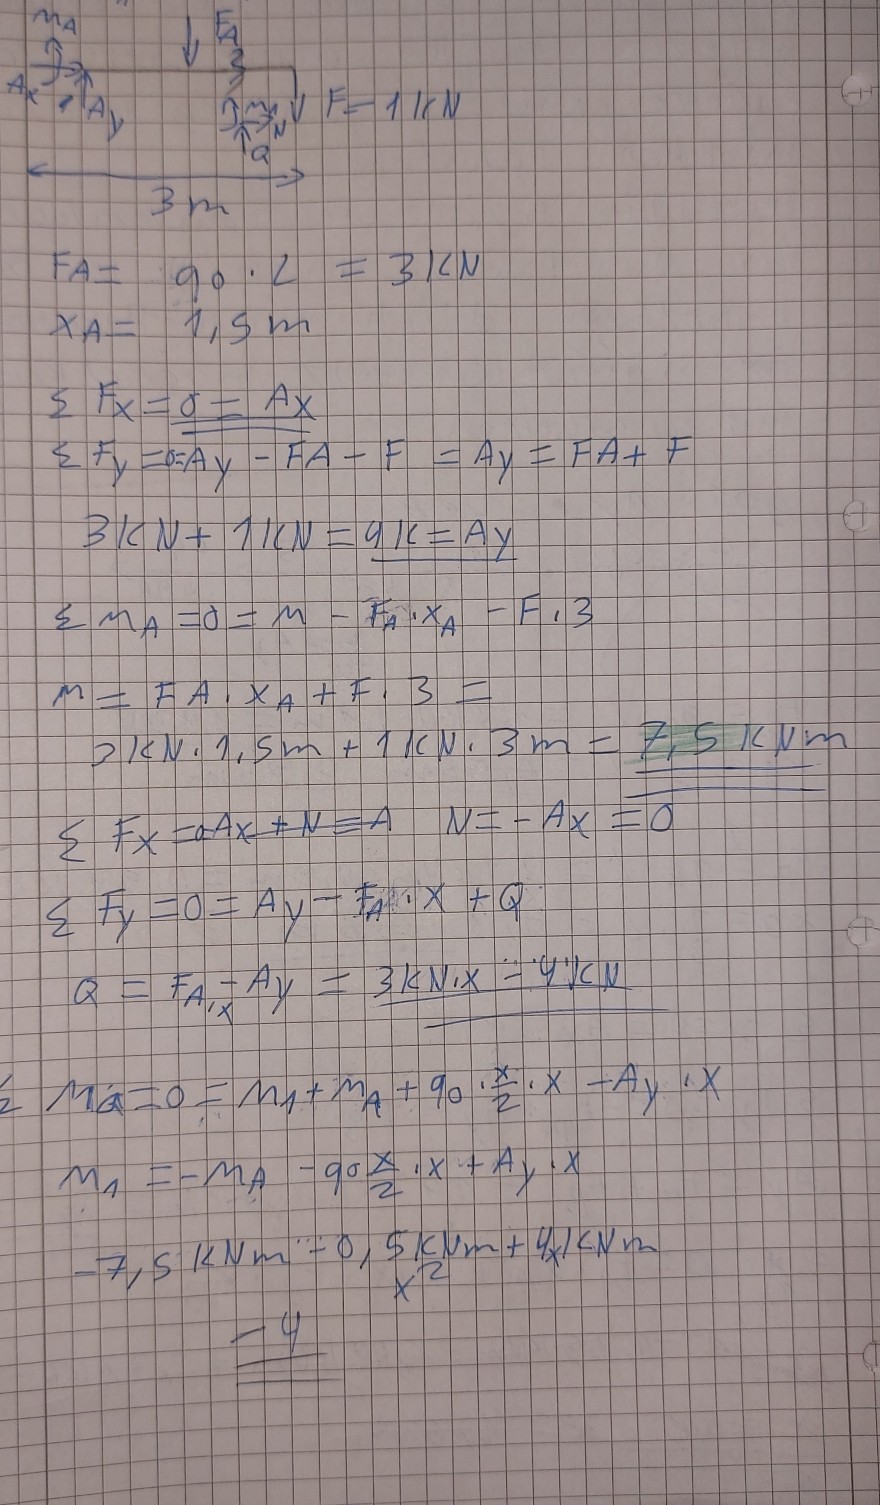 MA
FA
Ax
Ay
F = 1 KN
M1
N
Q
3 m
FA = q0 · L = 3 KN
xA = 1,5 m
Σ Fx = 0 = Ax
Σ Fy = 0 = Ay - FA - F = Ay = FA + F
3 KN + 1 KN = 4K = Ay
Σ MA = 0 = M - FA · xA - F · 3
M = FA · xA + F · 3 =
3 KN · 1,5m + 1 KN · 3 m = 7,5 KNm
Σ Fx = 0 Ax + N = A N = - Ax = 0
Σ Fy = 0 = Ay - FA · x + Q
Q = FA · x - Ay = 3 KN · x - 4 KN
Σ Ma = 0 = M1 + MA + q0 · x/2 · x - Ay · x
M1 = - MA - q0 x/2 · x + Ay · x
-7,5 KNm - 0,5 KNm x² + 4x KNm
- 4